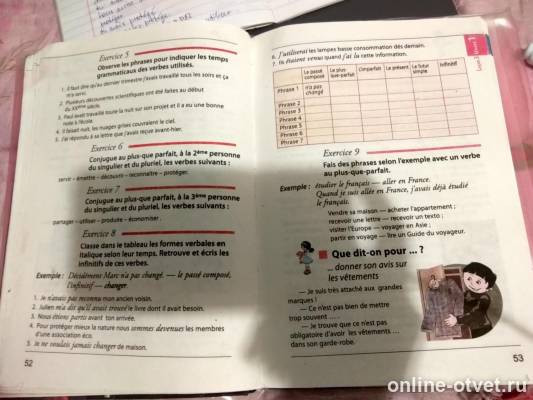 Exercice 5
Observe les phrases pour indiquer les temps
grammaticaux des verbes utilisés.
1. Il faut dire qu'au dernier trimestre j'avais travaillé tous les soirs et ça
m'a servi.
2. Plusieurs découvertes scientifiques ont été faites au début
du XXème siècle.
3. Paul avait travaillé toute la nuit sur son projet et il a eu une bonne
note à l'école.
4. Il faisait nuit, les nuages grises couvraient le ciel.
5. J'ai répondu à sa lettre que j'avais reçue avant-hier.
Exercice 6
Conjugue au plus-que parfait, à la 2ème personne
du singulier et du pluriel, les verbes suivants :
servir – émettre – découvrir – reconnaître – protéger.
Exercice 7
Conjugue au plus-que parfait, à la 3ème personne
du singulier et du pluriel, les verbes suivants :
partager – utiliser – produite – économiser .
Exercice 8
Classe dans le tableau les formes verbales en
italique selon leur temps. Retrouve et écris les
infinitifs de ces verbes.
Exemple : Décidément Marc n'a pas changé. — le passé composé,
l'infinitif — changer.
1. Je n'avais pas reconnu mon ancien voisin.
2. Julien m'a dit qu'il avait trouvé le livre dont il avait besoin.
3. Nous étions partis avant ton arrivée.
4. Pour protéger mieux la nature nous sommes devenues les membres
d'une association éco.
5. Je ne voulais jamais changer de maison.
52
6. J'utiliserai les lampes basse consommation dès demain.
7. Ils étaient venus quand j'ai lu cette information.
Le passé composé
Le plus-que-parfait
L'imparfait
Le présent
Le futur simple
Infinitif
Phrase 1
n'a pas changé
Phrase 2
Phrase 3
Phrase 4
Phrase 5
Phrase 6
Phrase 7
Exercice 9
Fais des phrases selon l'exemple avec un verbe
au plus-que-parfait.
Exemple : étudier le français — aller en France.
Quand je suis allée en France, j'avais déjà étudié
le français.
Vendre sa maison — acheter l'appartement ;
recevoir une lettre — recevoir un texto ;
visiter l'Europe — voyager en Asie ;
partir en voyage — lire un Guide du voyageur.
Que dit-on pour ... ?
... donner son avis sur
les vêtements
— Je suis très attaché aux grandes
marques !
— Ce n'est pas bien de mettre
trop souvent ... .
— Je trouve que ce n'est pas
obligatoire d'avoir les vêtements ...
dans son garde-robe.
53
online-otvet.ru